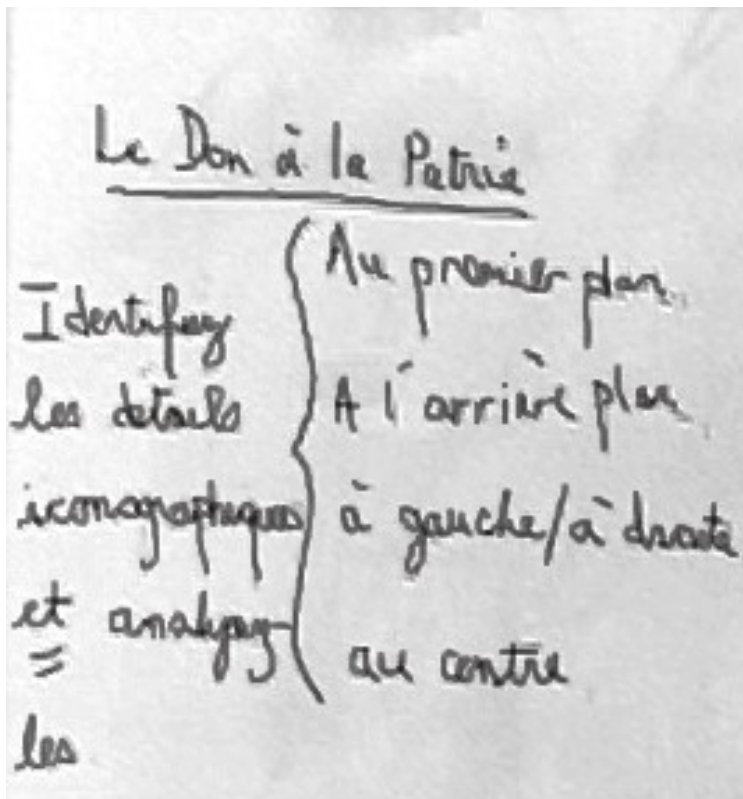 Le Don à la Patrie
Identifiez
les détails
iconographiques
et analysez
les
Au premier plan
A l'arrière plan
à gauche/à droite
au centre